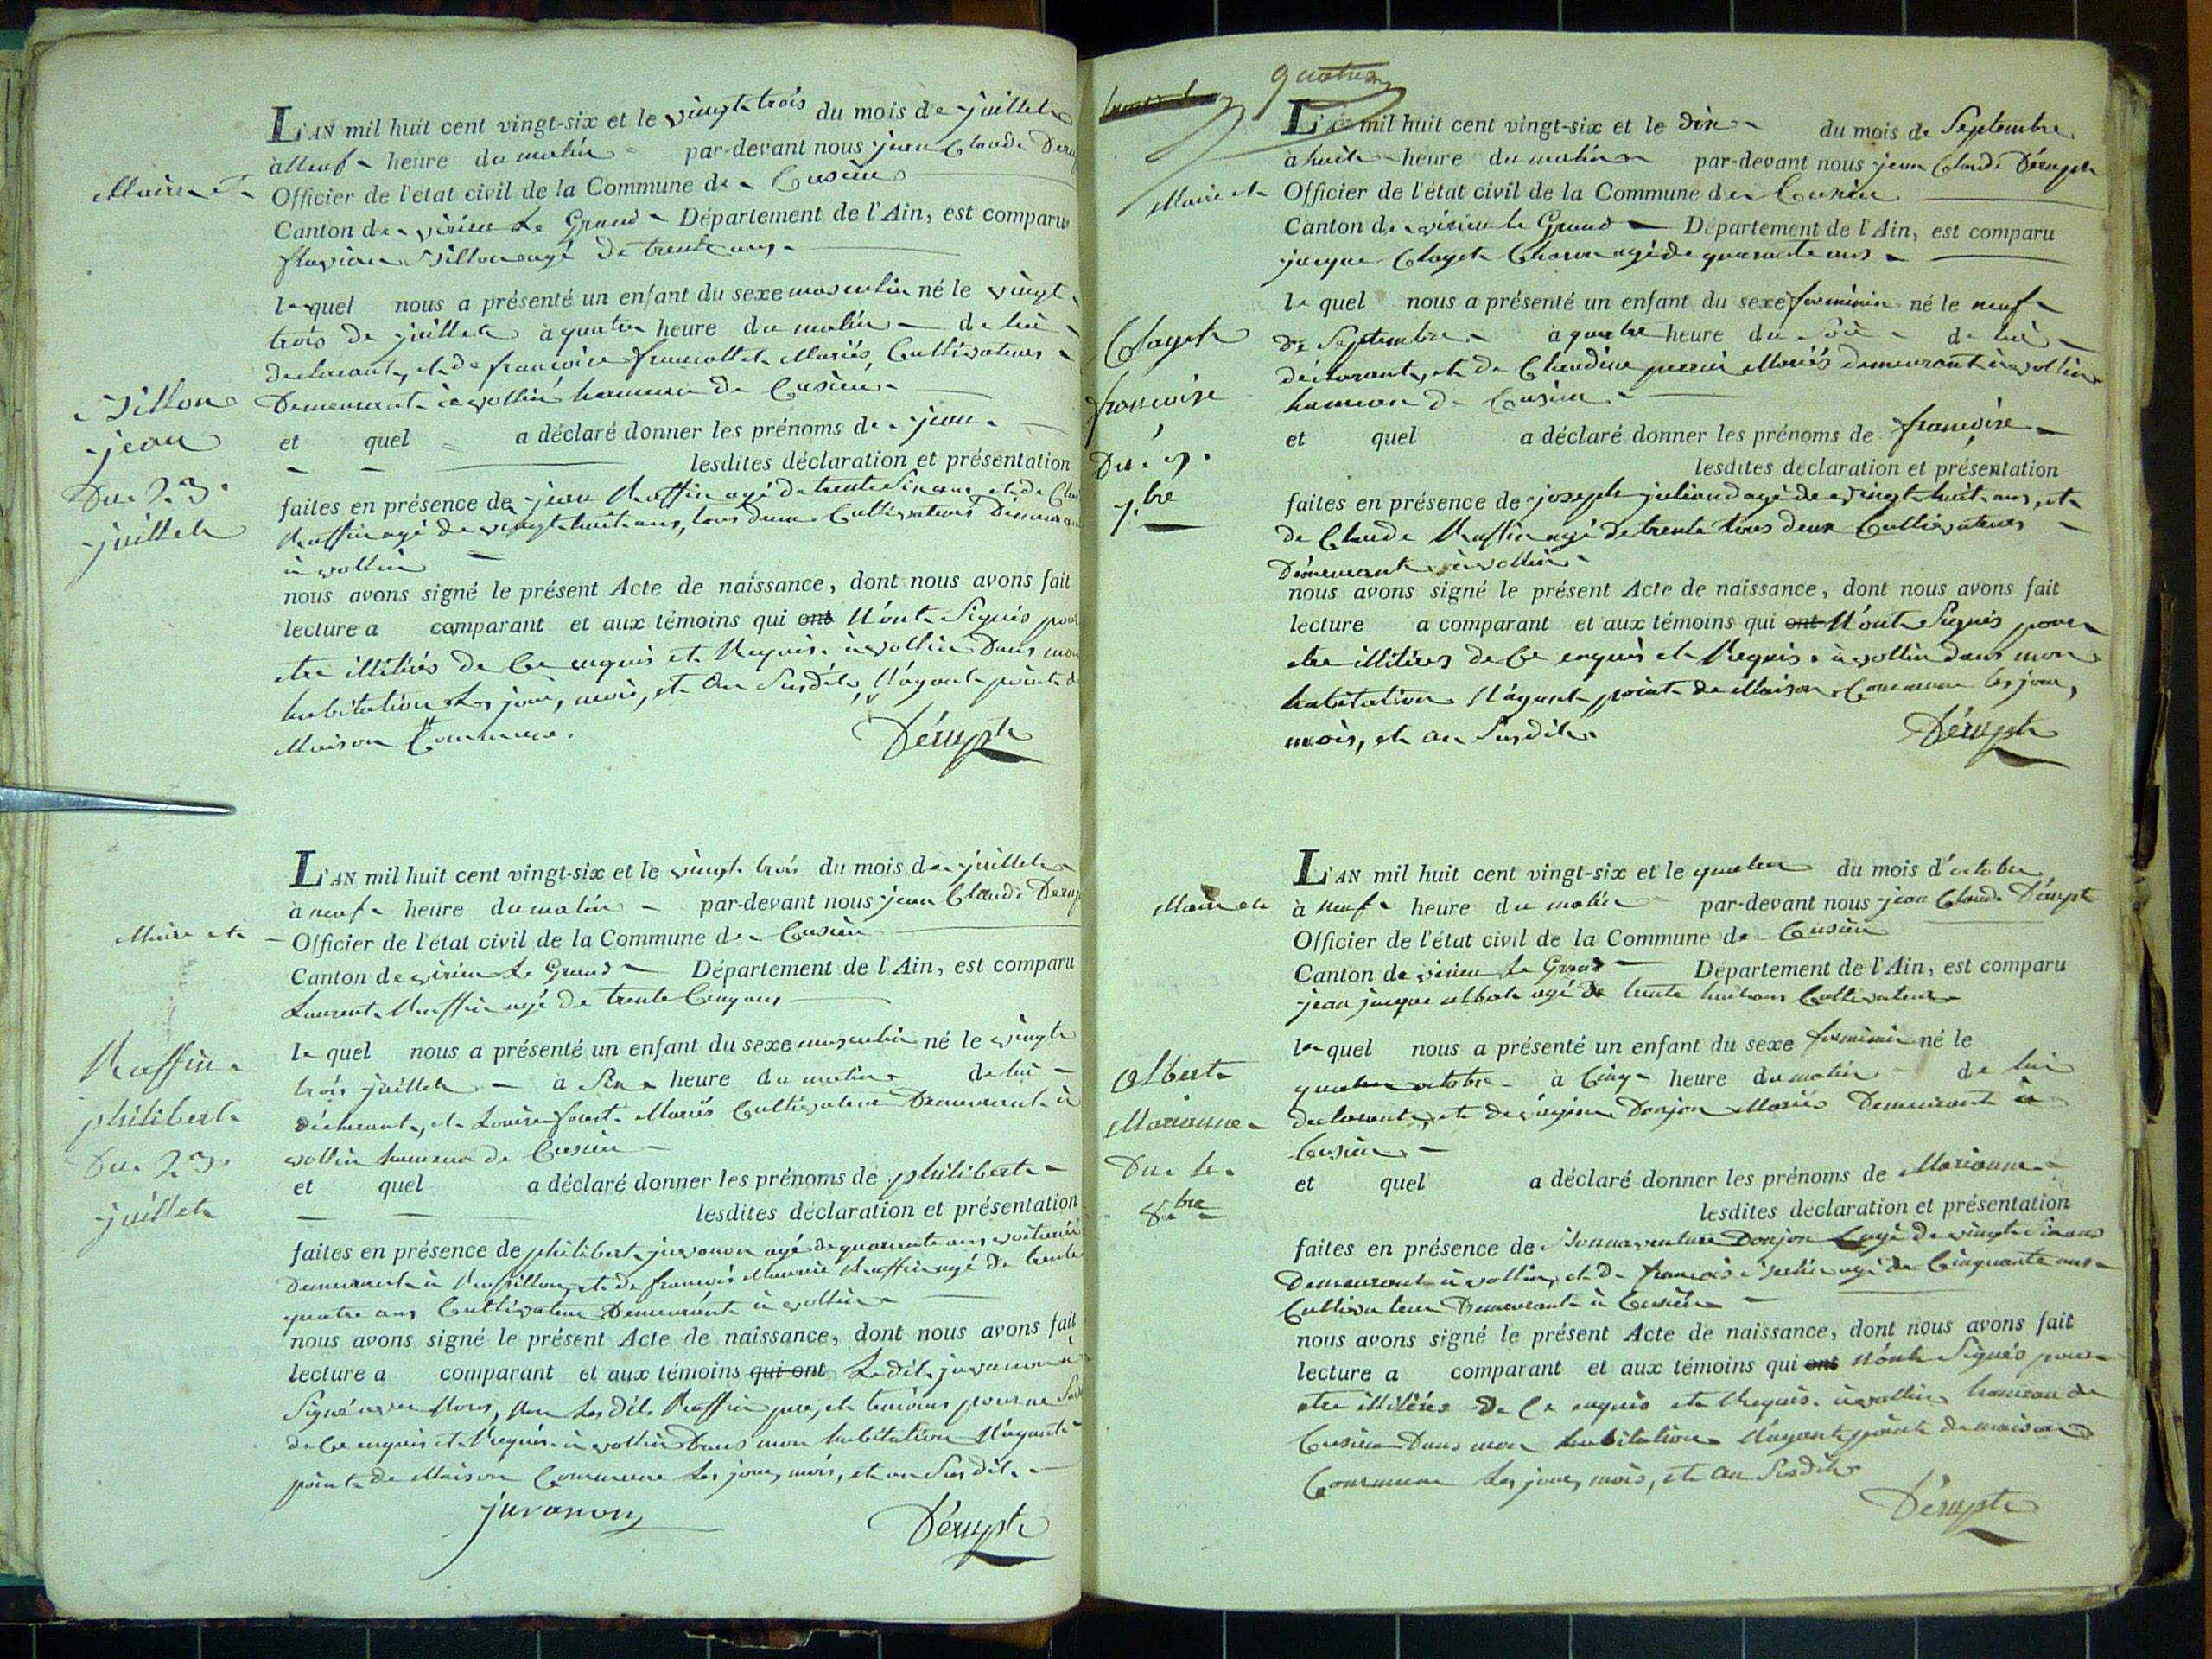 L'AN mil huit cent vingt-six et le vingt trois du mois de juillet
à Neuf heure du matin par-devant nous jean Claude
Maire et
Officier de l'état civil de la Commune de Cusieu
Canton de virieu Le Grand Département de l'Ain, est comparu
flavien Billon agé de trente ans
le quel nous a présenté un enfant du sexe masculin né le vingt
trois de juillet à quatre heure du matin de lui
declarant, et de francoise Mariés, Cultivateurs
Demeurant à vollin hameau de Cusieu
et quel a déclaré donner les prénoms de jean
lesdites déclaration et présentation
Billon
jean
Du 23
juillet
faites en présence de jean Ruffin agé de trente Six ans et de
Ruffin agé de vingt huit ans, tous deux Cultivateurs
à vollin
nous avons signé le présent Acte de naissance, dont nous avons fait
lecture a comparant et aux témoins qui ont N'ont Signés pour
etre illitirés de Ce enquis et Requis à vollin Dans mon
habitation Les jour, mois, et An Susdit, N'ayant point de
Maison Commune.
Dérupt
L'AN mil huit cent vingt-six et le vingt trois du mois de juillet
à neuf heure du matin par-devant nous jean Claude
Maire et
Officier de l'état civil de la Commune de Cusieu
Canton de virieu Le Grand Département de l'Ain, est comparu
Laurent Ruffin agé de trente Cinq ans
le quel nous a présenté un enfant du sexe masculin né le vingt
trois juillet à Six heure du matin de lui
déclarant, et Louise Mariés Cultivateur Demeurant à
vollin hameau de Cusieu
et quel a déclaré donner les prénoms de philibert
lesdites déclaration et présentation
Ruffin
philibert
Du 23
juillet
faites en présence de philibert juvanon agé de quarante ans
Demeurant à Rossillon, et de francois Maurice Ruffin agé de trente
quatre ans Cultivateur Demeurant à vollin
nous avons signé le présent Acte de naissance, dont nous avons fait
lecture a comparant et aux témoins qui ont Le dit juvanon a
Signé avec Nous, Non Les dits Ruffin pere, et temoins pour ne
de Ce enquis et Requis à vollin Dans mon habitation N'ayant
point de Maison Commune Les jour, mois, et an Susdit
juvanon
Dérupt
quatre
L'AN mil huit cent vingt-six et le dix du mois de Septembre
à huit heure du matin par-devant nous jean Claude Dérupt
Maire et
Officier de l'état civil de la Commune de Cusieu
Canton de virieu le Grand Département de l'Ain, est comparu
jacque Clayet Charon agé de quarante ans
le quel nous a présenté un enfant du sexe feminin né le neuf
de Septembre à quatre heure du Soir de lui
déclarant, et de Claudine Mariés demeurant à vollin
hameau de Cusieu
et quel a déclaré donner les prénoms de françoise
lesdites déclaration et présentation
Clayet
francoise
Du 9
7.bre
faites en présence de joseph juliand agé de vingt huit ans, et
de Claude Ruffin agé de trente tous deux Cultivateurs
Demeurant à vollin
nous avons signé le présent Acte de naissance, dont nous avons fait
lecture a comparant et aux témoins qui ont N'ont Signés pour
etre illitirés de Ce enquis et Requis à vollin dans mon
habitation N'ayant point de Maison Commune les jour,
mois, et an Susdit
Dérupt
L'AN mil huit cent vingt-six et le quatre du mois d'octobre
Maire et
à neuf heure du matin par-devant nous jean Claude Dérupt
Officier de l'état civil de la Commune de Cusieu
Canton de virieu Le Grand Département de l'Ain, est comparu
jean jacque Albert agé de trente huit ans Cultivateur
le quel nous a présenté un enfant du sexe feminin né le
quatre octobre à Cinq heure du matin de lui
declarant, et de Donjon Mariés Demeurant à
Cusieu
et quel a déclaré donner les prénoms de Marianne
lesdites declaration et présentation
Albert
Marianne
Du 4
8.bre
faites en présence de Bonnaventure Donjon agé de vingt Six ans
Demeurant à vollin, et de francois agé de Cinquante ans
Cultivateur Demeurant à Cusieu
nous avons signé le présent Acte de naissance, dont nous avons fait
lecture a comparant et aux témoins qui ont N'ont Signés pour
etre illitirés de Ce enquis et Requis à vollin hameau de
Cusieu Dans mon habitation N'ayant point de maison
Commune Les jour, mois, et An Susdit
Dérupt